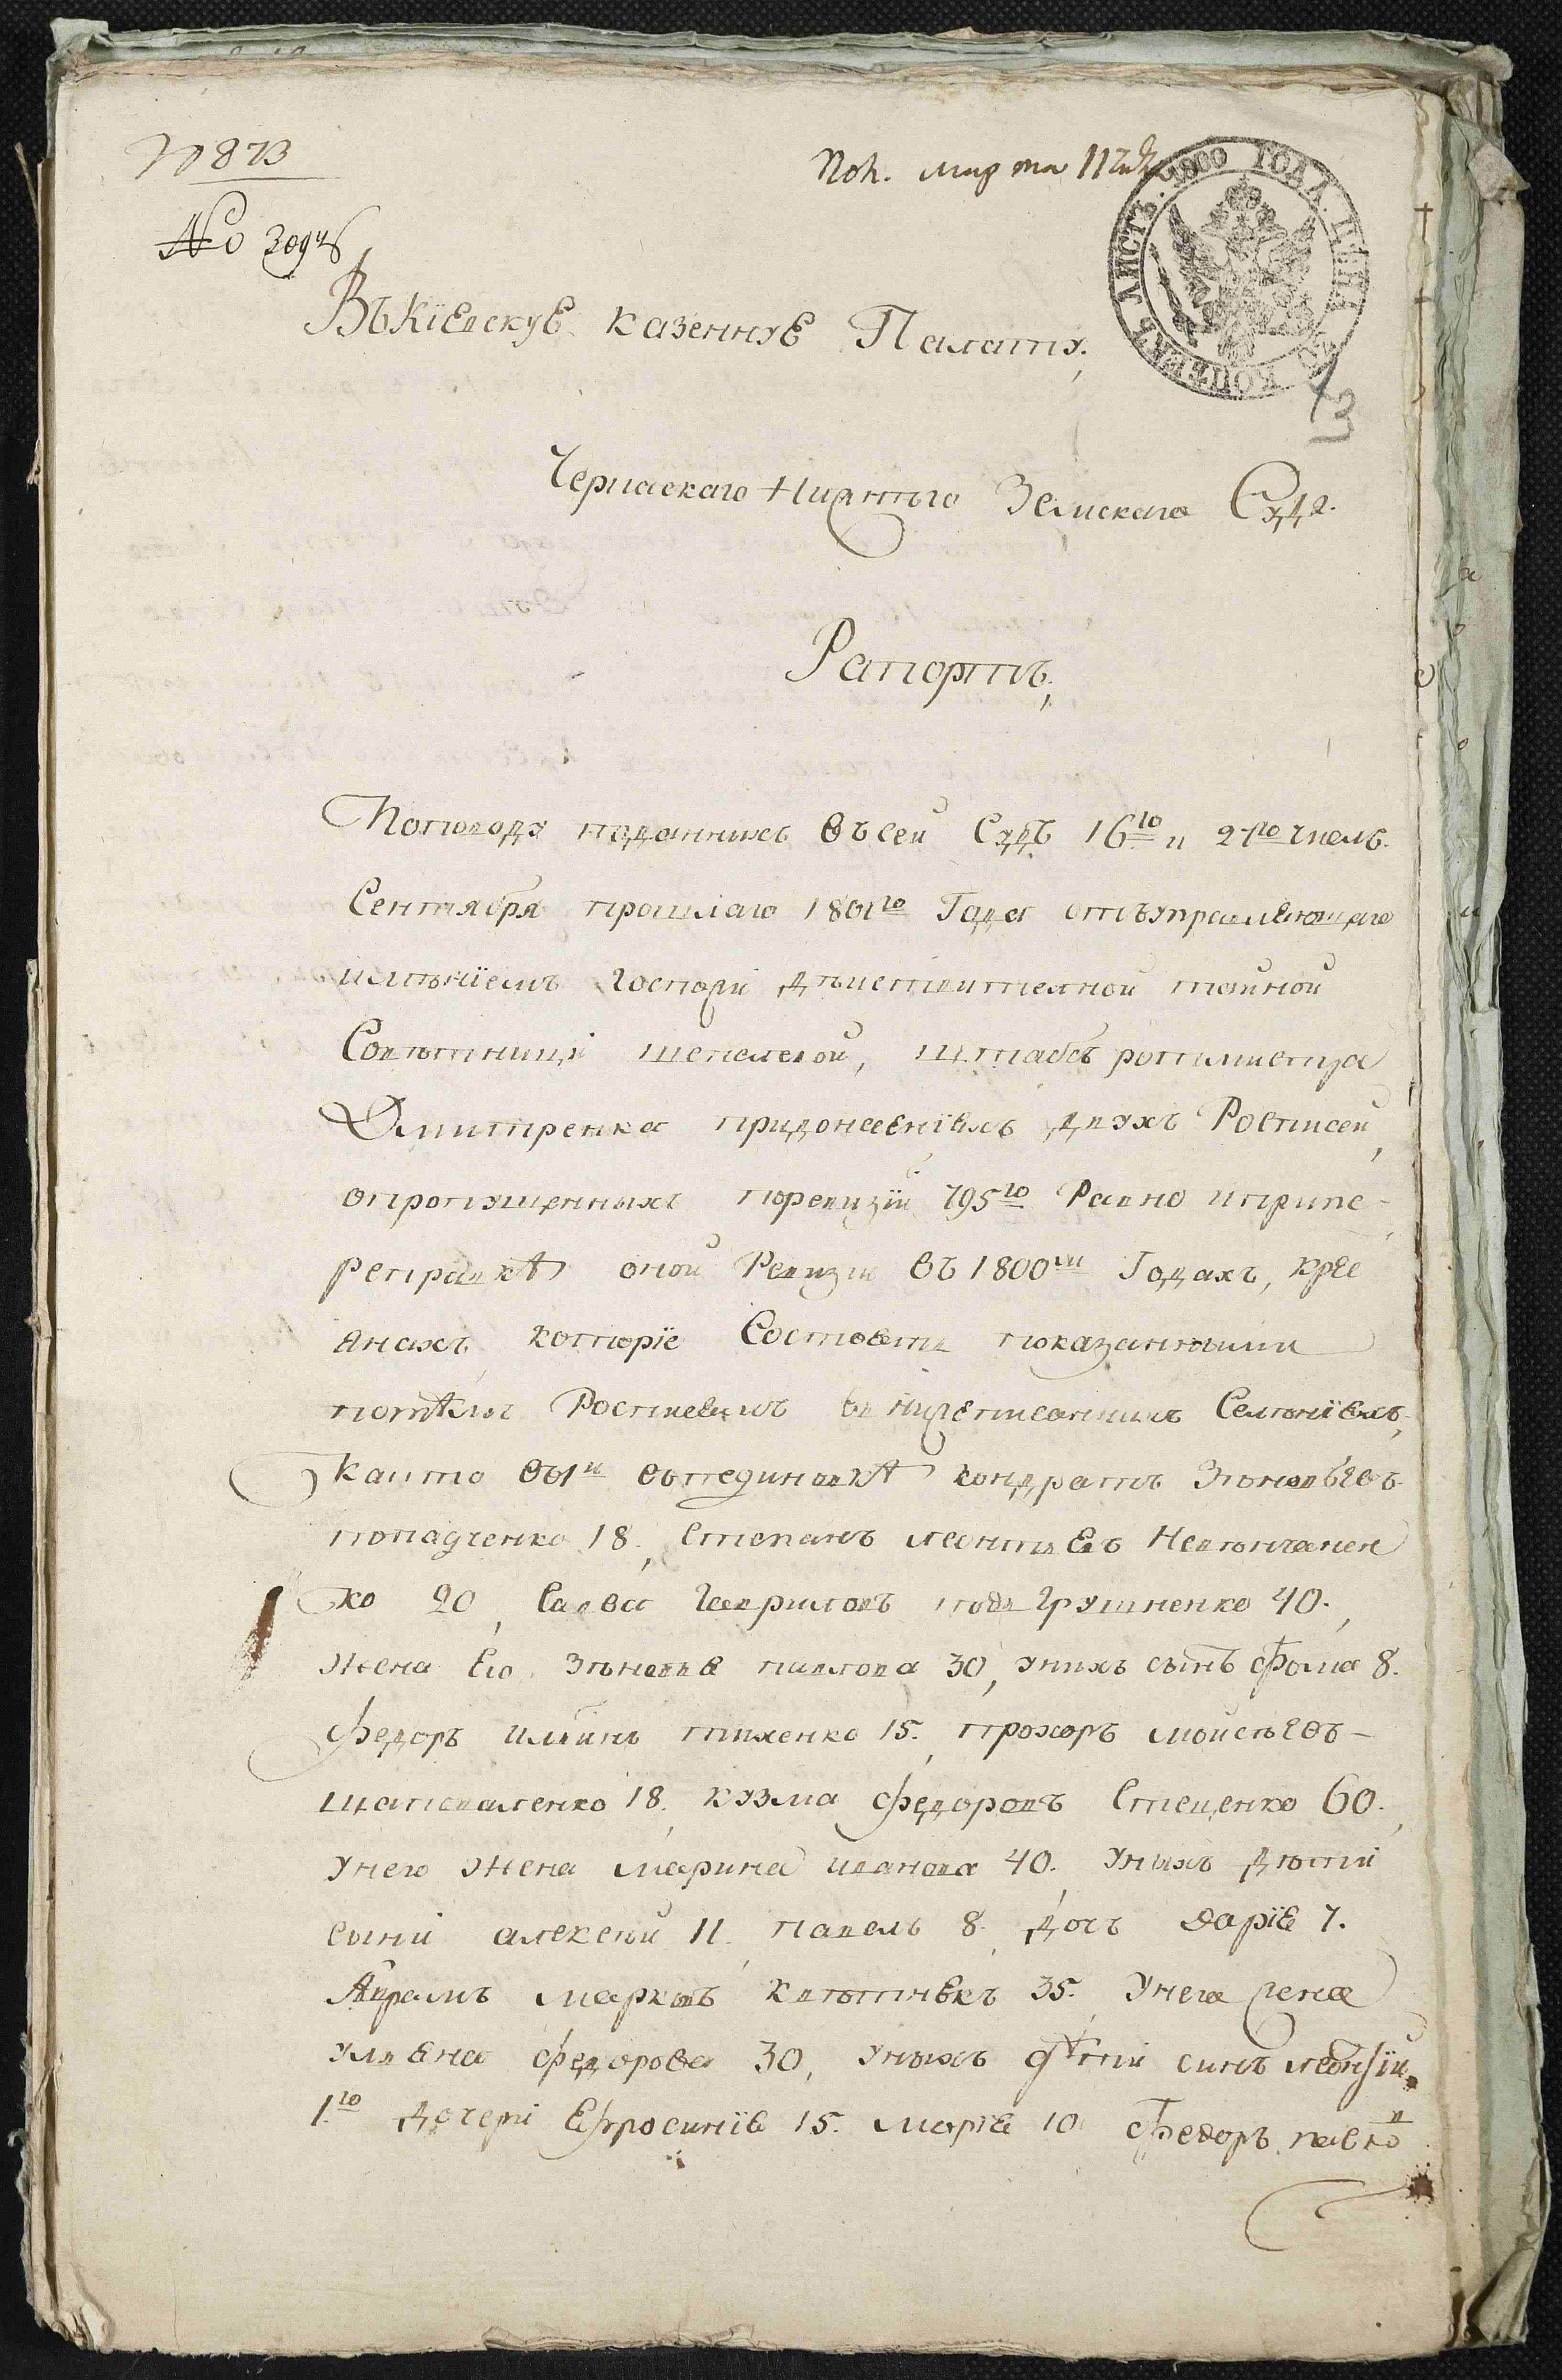 № 873
Пол. марта 11 дня
№
1800 ГОДА. ЦѢНА КОПѢЕКЪ ЛИСТЪ.
13
ВъКіевскую казенную Палату,
Черкаскаго Нижнего Земскаго Суда.
Рапортъ,
Поповоду поданнихъ въсей Судъ 16го и 27го числъ
Сентября прошлаго 1801го Года отъуправляющаго
имѣніемъ Госпожи дѣиствителной тайной
Совѣтници шепелевой, штабъ ротмистра
Дмитренка придонесеніяхъ двухъ Росписей,
опропущенныхъ поревизіи 795го Равно иприпе-
реправкѣ оной Ревизіи въ 1800м Годахъ, кресть
янахъ которіе Состоятъ показанными
потѣмъ Росписямъ внижеписанныхъ Селеніяхъ,
както въ1й вътединовкѣ кондратъ Зѣновьевъ
попадченко 18, Степанъ леонтьевъ
ко 20, Савва Гавриловъ подгрушненко 40.,
жена Его Зѣновья павлова 30, унихъ сынъ Фома 8.
Федоръ Ильинъ тихенко 15., прохоръ мойсѣевъ
шаповаленко 18, кузма Федоровъ Стеценко 60.,
унего жена марина иванова 40. унихъ дѣти
сыни алексѣй 11, павелъ 8. дочъ дарія 7.
Аврамъ марковъ квѣтнякъ 35. Унего жена
ульяна федорова 30, унихъ дѣти синъ леонтій
1го дочери Ефросинія 15. марія 10 Федоръ павло